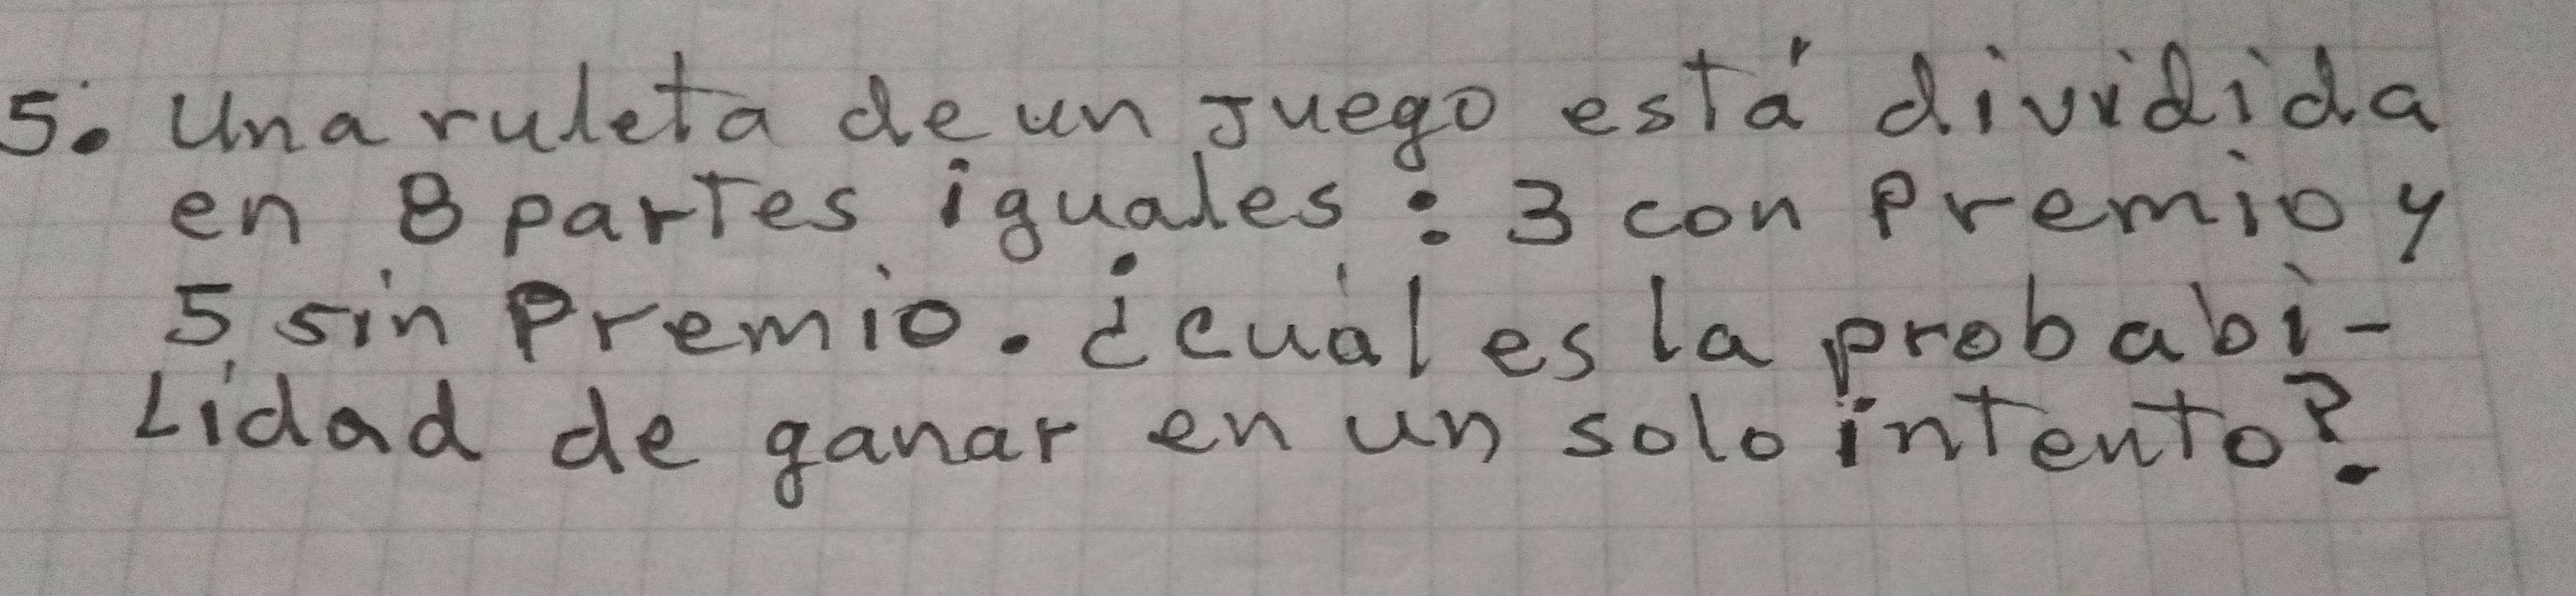 5. Una ruleta de un Juego está dividida
en 8 partes iguales: 3 con Premio y
5 sin Premio. ¿cuál es la probabi-
Lidad de ganar en un solo intento?